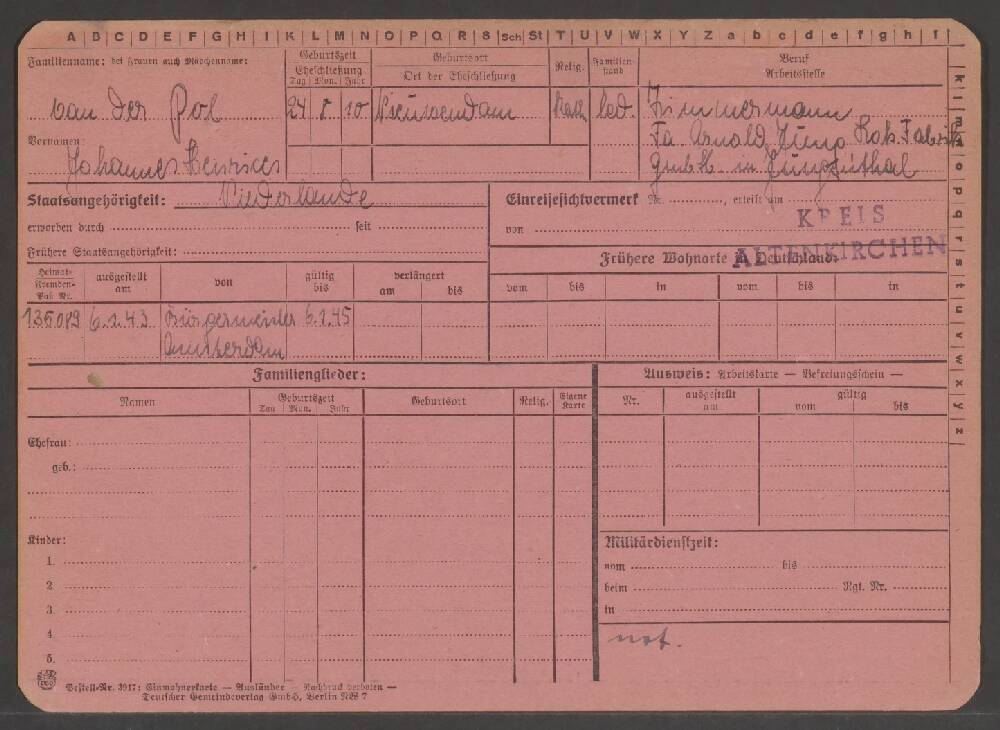 A B C D E F G H I K L M N O P Q R S Sch St T U V W X Y Z a b c d e f g h i
k l m n o p q r s t u v w x y z
Familienname: bei Frauen auch Mädchenname:
Geburtszeit
Eheschließung
Tag Mon. Jahr
Geburtsort
Ort der Eheschließung
Relig.
Familien-
stand
Beruf
Arbeitsstelle
van der Pol
24 8 10
Nieuwendam
Kath
led.
Zimmermann
Fa Arnold Jung Lok. Fabrik
GmbH. in Jungenthal
Vornamen:
Johannes Henricus
Staatsangehörigkeit: Niederlande
erworben durch seit
Frühere Staatsangehörigkeit:
Einreisesichtvermerk Nr. , erteilt am
von
KREIS
ALTENKIRCHEN
Frühere Wohnorte in Deutschland:
vom bis in vom bis in
Heimat-
Fremden-
Paß Nr.
ausgestellt
am
von
gültig
bis
verlängert
am bis
135089 6.1.43 Bürgermeister 6.1.45
Amsterdam
Familienglieder:
Namen
Geburtszeit
Tag Mon. Jahr
Geburtsort
Relig.
Eigene
Karte
Ehefrau:
geb.:
Kinder:
1.
2.
3.
4.
5.
Ausweis: Arbeitskarte — Befreiungsschein —
Nr.
ausgestellt
am
gültig
vom bis
Militärdienstzeit:
vom bis
beim Rgt. Nr.
in
not.
Bestell-Nr. 3917: Einwohnerkarte — Ausländer — Nachdruck verboten —
Deutscher Gemeindeverlag GmbH, Berlin NW 7